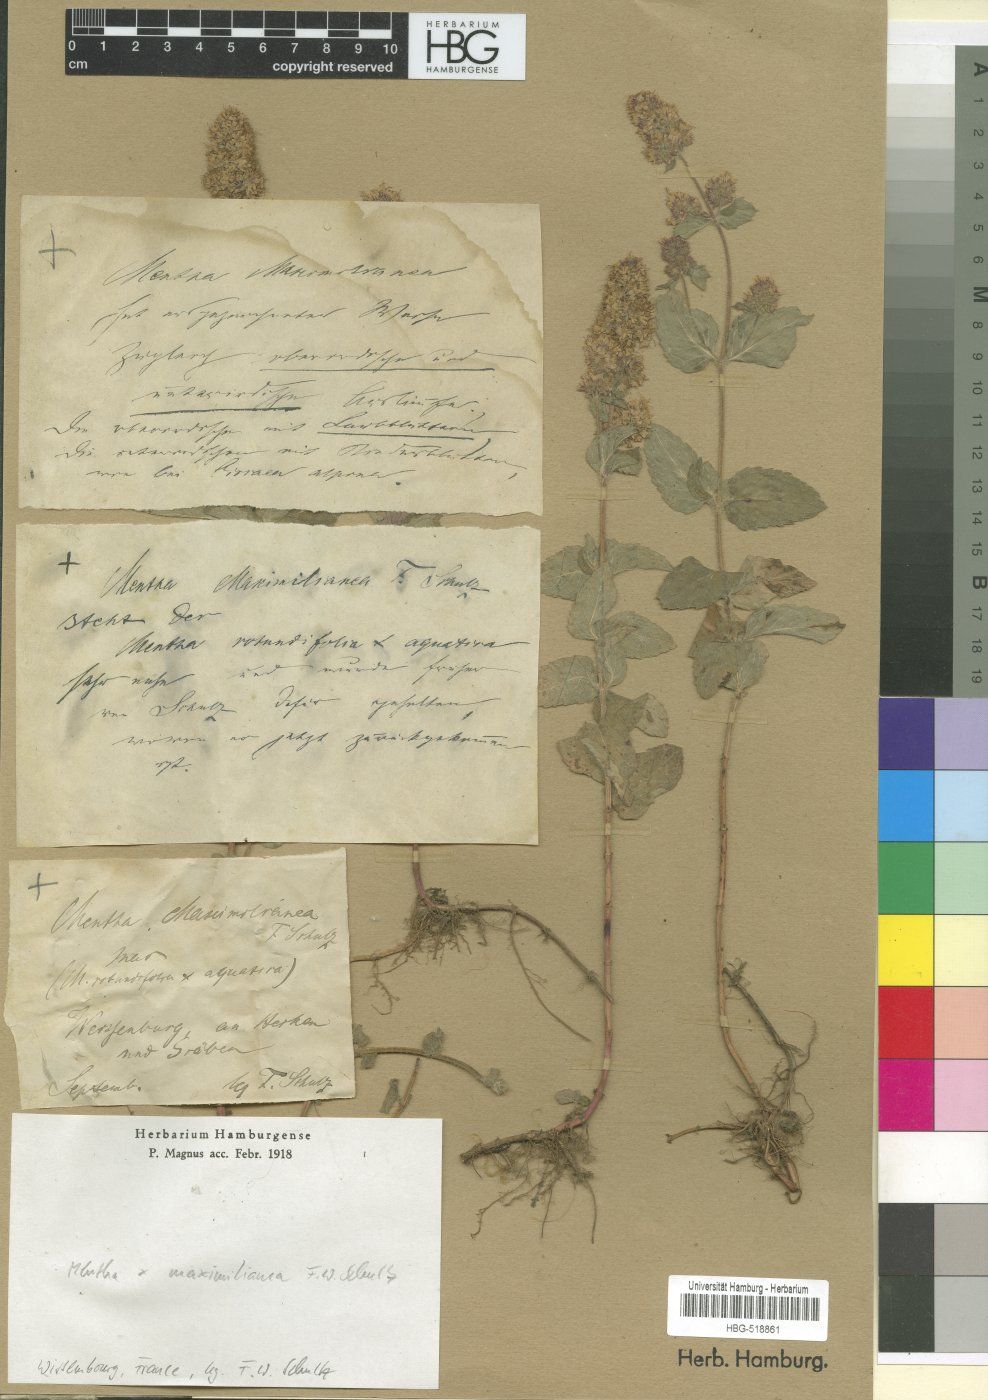 0 1 2 3 4 5 6 7 8 9 10
cm
copyright reserved
HERBARIUM
HBG
HAMBURGENSE
A
1
2
3
4
5
6
M
8
9
10
11
12
13
14
15
B
17
18
19
+
Mentha Maximilianea
hat
zugleich oberirdische und
unterirdische Ausläufer.
Die oberirdischen mit Laubblättern
die unterirdischen mit Niederblättern,
wie bei Circaea alpina.
+
Mentha Maximilianea F. Schulz
steht der
Mentha rotundifolia x aquatica
sehr nahe und wurde früher
von Schulz dafür gehalten,
wovon er jetzt zurückgekommen
ist.
+
Mentha Maximilianea
F. Schulz
(M. rotundifolia x aquatica)
Weissenburg, an Hecken
und Gräben
Septemb. leg F. Schulz
Herbarium Hamburgense
P. Magnus acc. Febr. 1918
Mentha x maximilianea F.W. Schultz
Wissembourg, France, lg. F. W. Schultz
Universität Hamburg - Herbarium
HBG-518861
Herb. Hamburg.